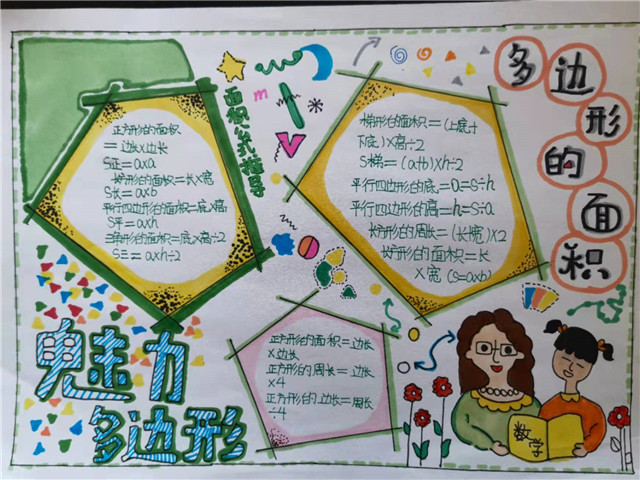 多边形的面积
面积公式推导
正方形的面积
=边长×边长
S正=a×a
长方形的面积=长×宽
S长=a×b
平行四边形的面积=底×高
S平=a×h
三角形的面积=底×高÷2
S三=a×h÷2
梯形的面积=(上底+
下底)×高÷2
S梯=(a+b)×h÷2
平行四边形的底=a=S÷h
平行四边形的高=h=S÷a
长方形的周长=(长宽)×2
长方形的面积=长
×宽(S=a×b)
正方形的面积=边长
×边长
正方形的周长=边长
×4
正方形的边长=周长
÷4
魅力
多边形
数学